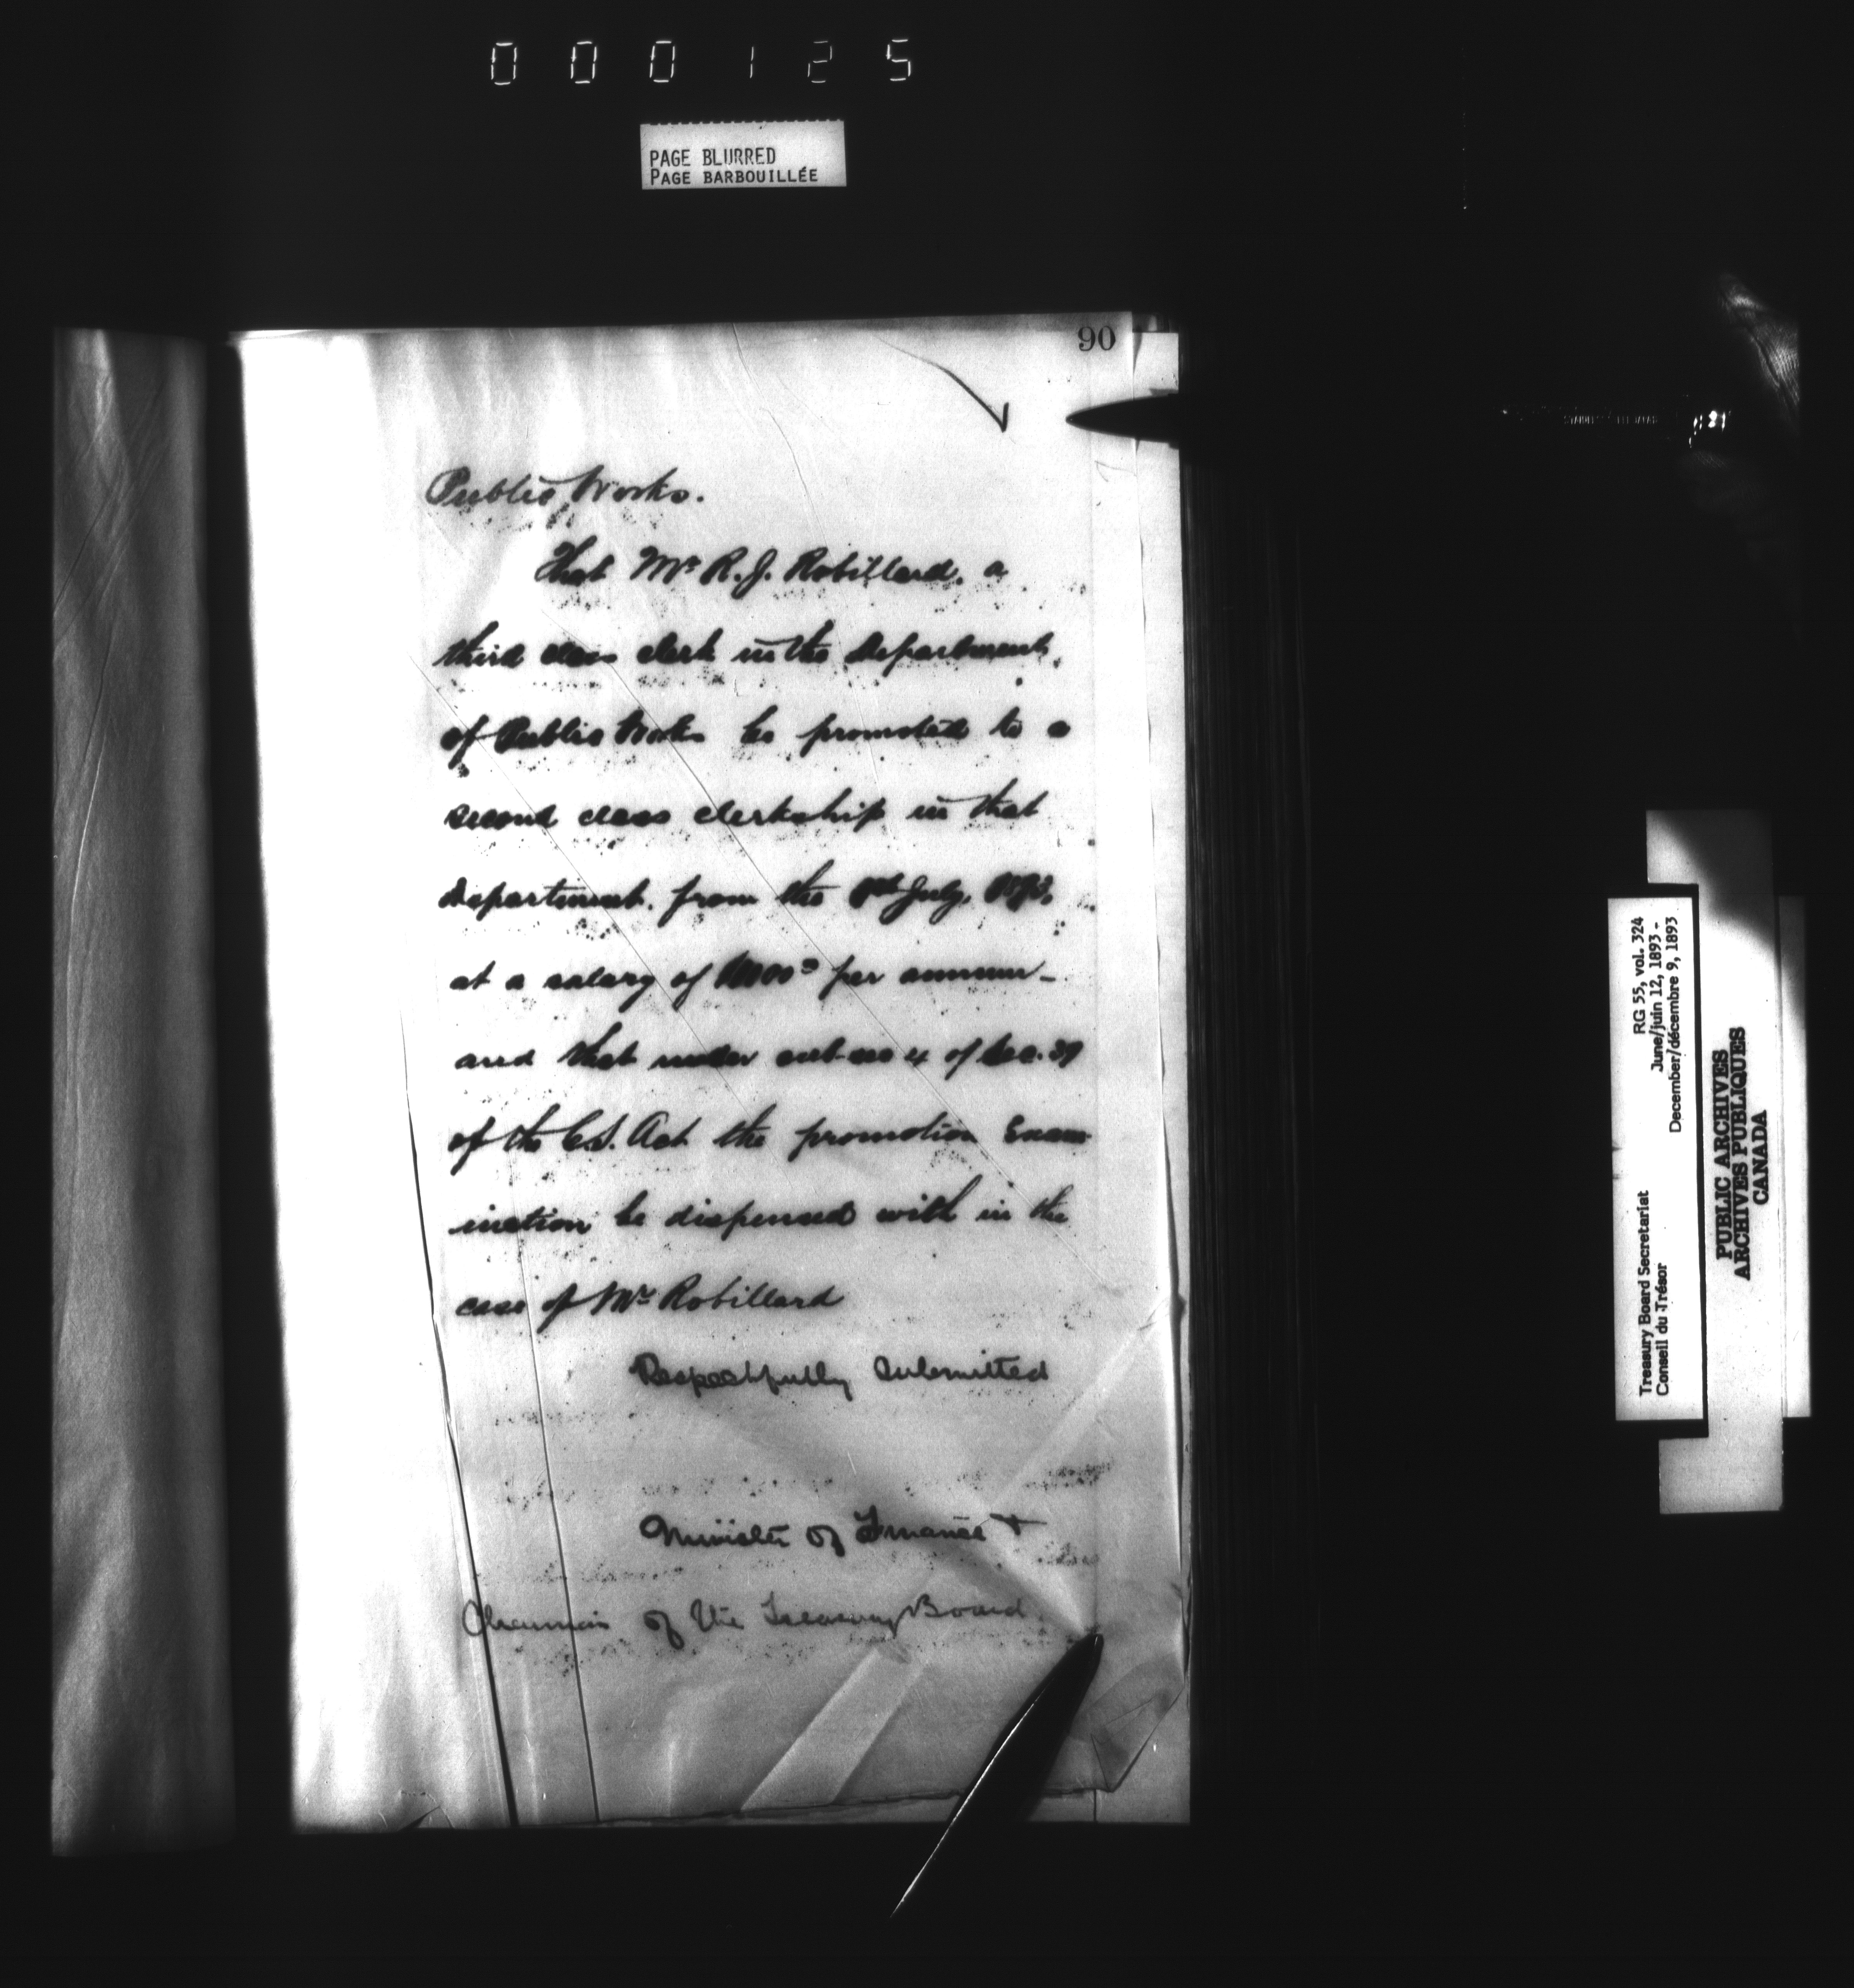 000125
PAGE BLURRED
PAGE BARBOUILLÉE
90
Public Works.
That Mr R. J. Robillard, a
third class clerk in the Department
of Public Works be promoted to a
second class clerkship in that
Department, from the 1st July,
at a salary of per annum
and that under sub-sec 4 of Sec. 39
of the C.S. Act the promotion Exam-
ination be dispensed with in the
case of Mr Robillard
Respectfully submitted
Minister of Finance +
Chairman of the Treasury Board.
Treasury Board Secretariat
Conseil du Trésor
RG 55, vol. 324
June/juin 12, 1893 -
December/décembre 9, 1893
PUBLIC ARCHIVES
ARCHIVES PUBLIQUES
CANADA